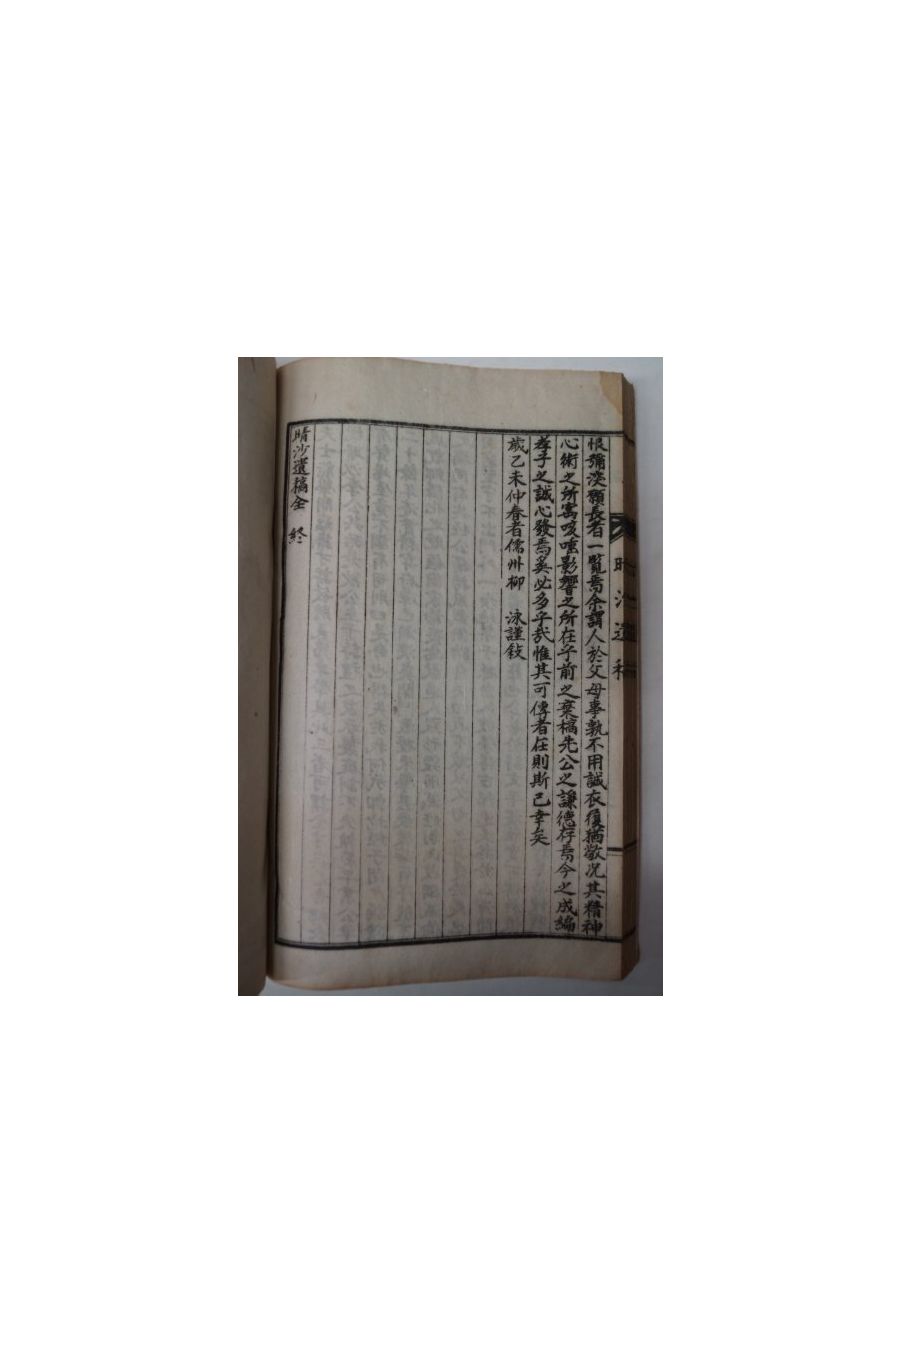 晴沙遺稿
恨彌深願長者一覽焉余謂人於父母事孰不用誠衣履猶敬况其精神
心術之所寓咳唾影響之所在乎前之棄稿先公之謙德存焉今之成編
孝子之誠心發焉奚必多乎哉惟其可傳者在則斯已幸矣
歲乙未仲春者儒州柳 泳謹敍
晴沙遺稿全 終